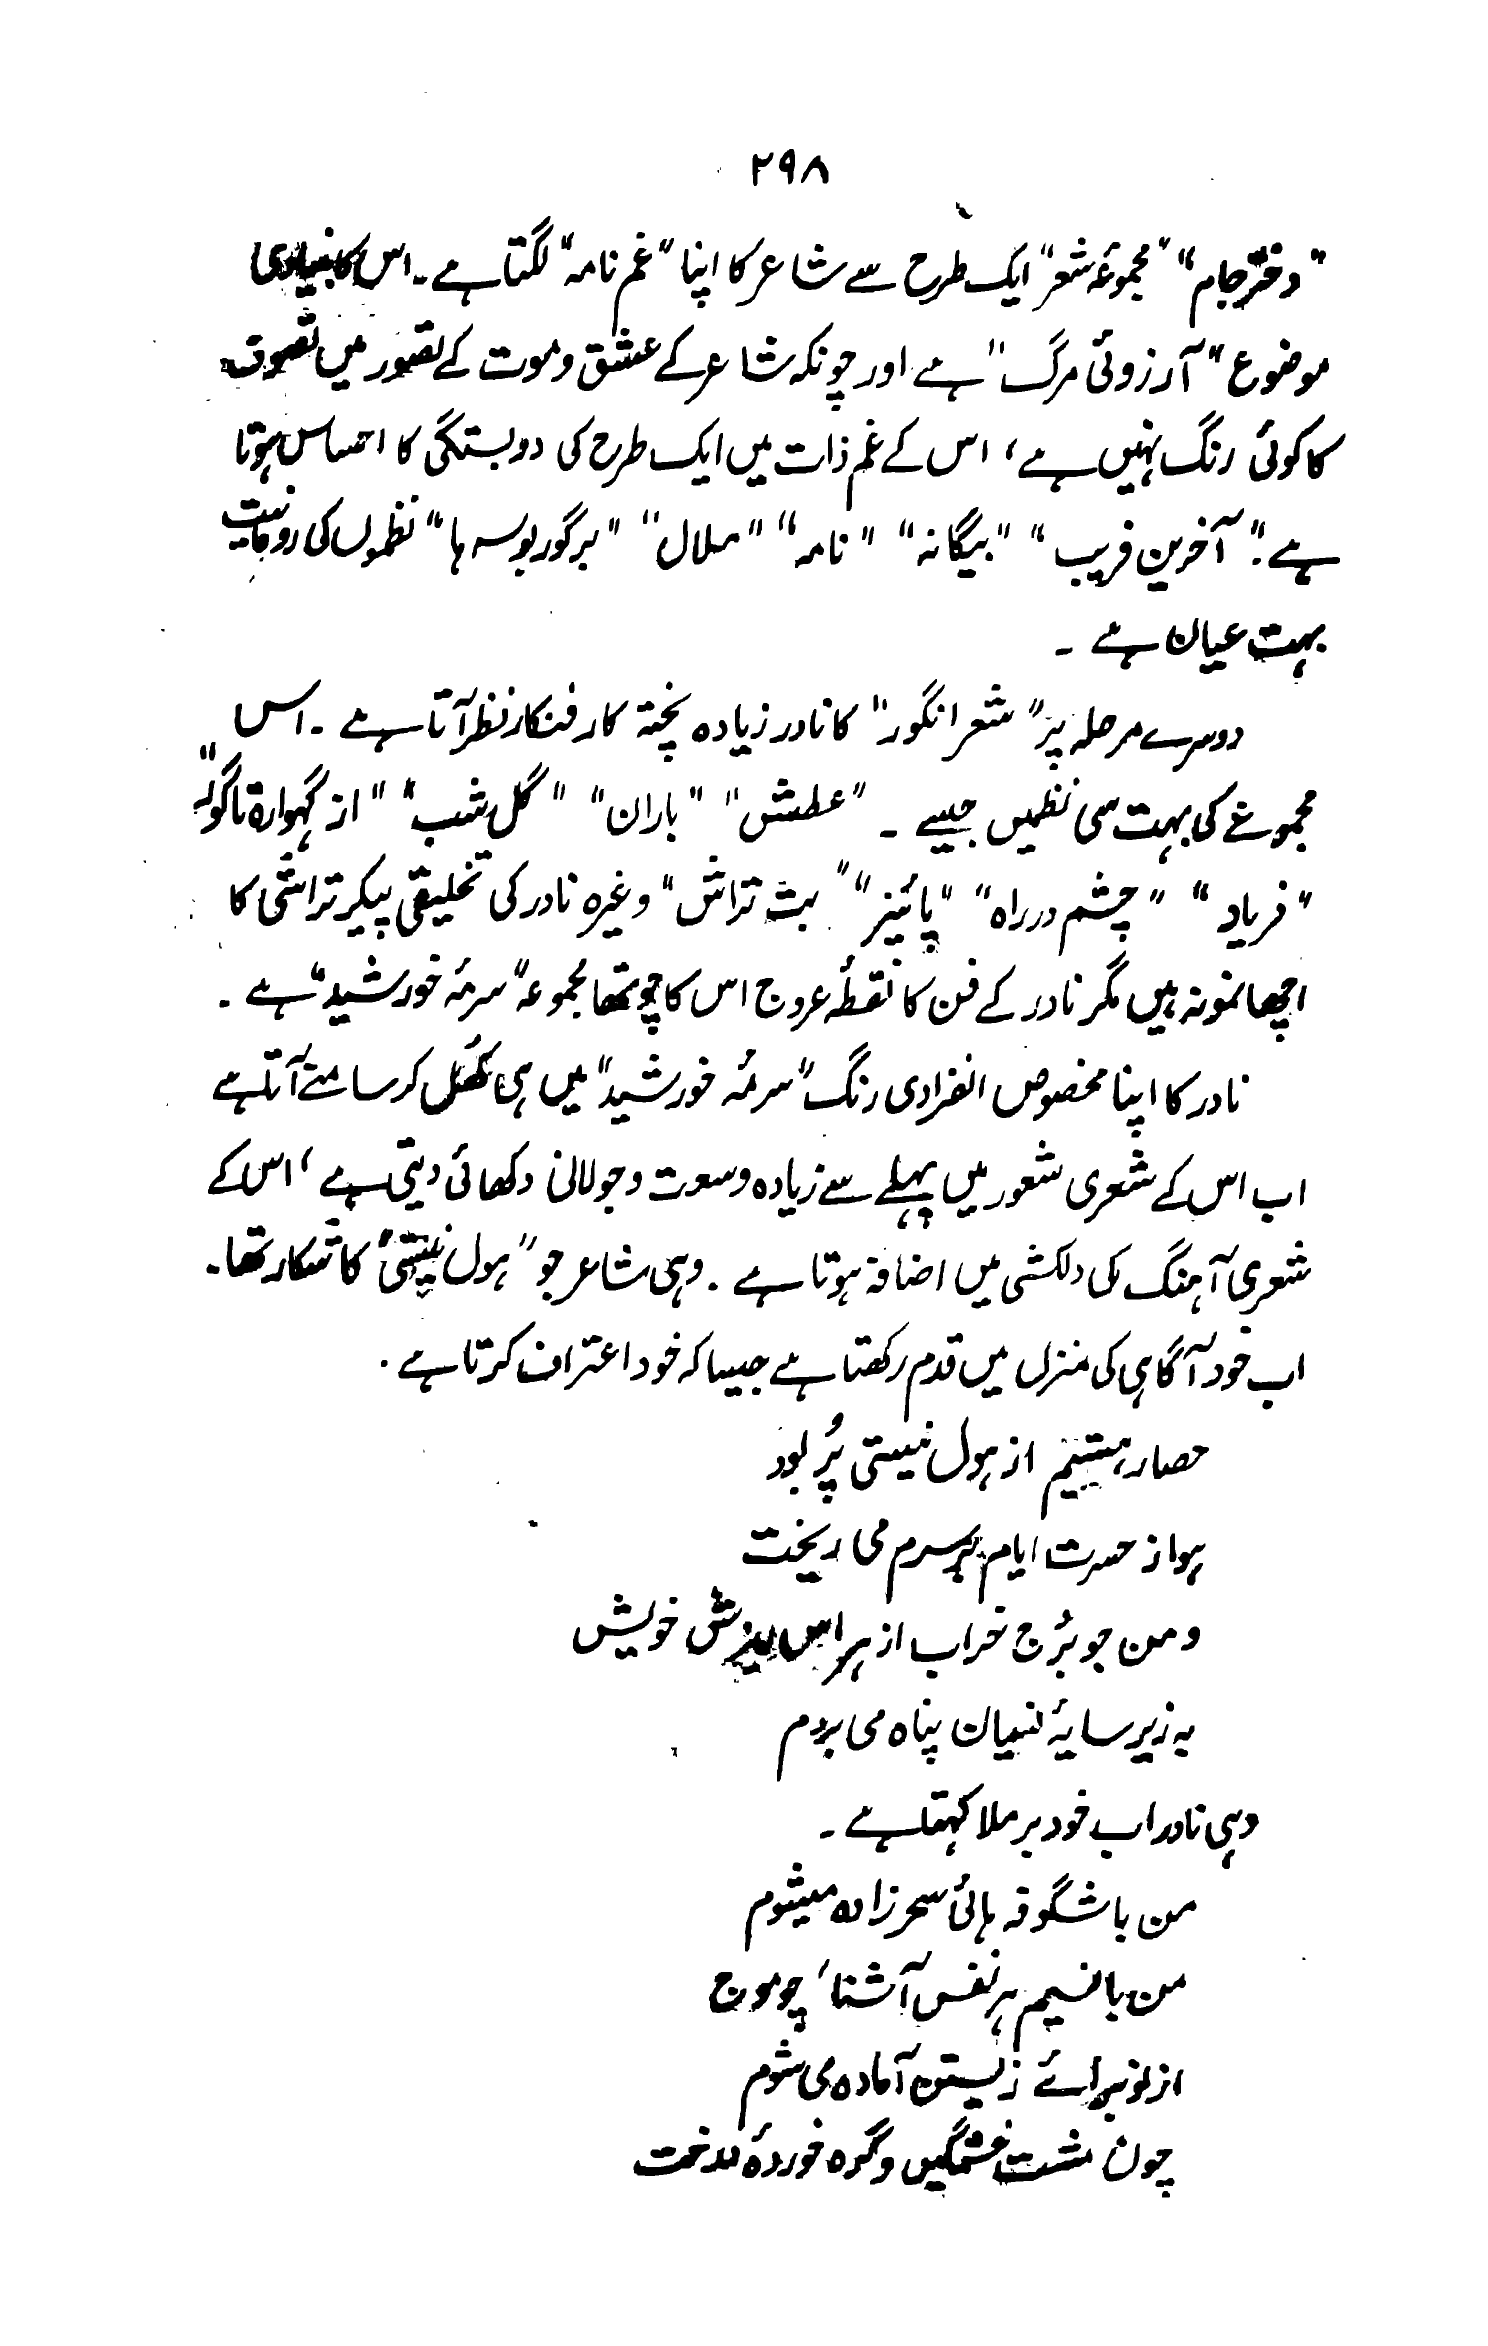 ۲۹۸
"دختر جام" "مجموعۂ شعر" ایک طرح سے شاعر کا اپنا "غم نامہ" لگتا ہے۔ اس کا بنیادی
موضوع "آرزوئی مرگ" ہے اور چونکہ شاعر کے عشق و موت کے تصور میں تصوف
کا کوئی رنگ نہیں ہے، اس کے غم ذات میں ایک طرح کی دوبستگی کا احساس ہوتا
ہے۔ "آخرین فریب" "بیگانہ" "نامہ" "ملال" "بر گور بوسہ ہا" نظموں کی رومانیت
بہت عیان ہے ۔
دوسرے مرحلہ پر "شعر انگور" کا نادر زیادہ پختہ کار فنکار نظر آتا ہے ۔ اس
مجموعے کی بہت سی نظمیں جیسے ۔ "عطش" "باران" "گل شب" "از گہوارہ تا گور"
"فریاد" "چشم در راہ" "پائیز" "بت تراش" وغیرہ نادر کی تخلیقی پیکر تراشی کا
اچھا نمونہ ہیں مگر نادر کے فن کا نقطۂ عروج اس کا چوتھا مجموعہ "سرمۂ خورشید" ہے ۔
نادر کا اپنا مخصوص انفرادی رنگ "سرمۂ خورشید" میں ہی کھُل کر سامنے آتا ہے
اب اس کے شعری شعور میں پہلے سے زیادہ وسعت و جولانی دکھائی دیتی ہے، اس کے
شعری آہنگ کی دلکشی میں اضافہ ہوتا ہے ۔ وہی شاعر جو "ہول نیستی" کا شکار تھا۔
اب خود آگاہی کی منزل میں قدم رکھتا ہے جیسا کہ خود اعتراف کرتا ہے ۔
حصار ہستیم از ہول نیستی پُر بود
ہوا ز حسرت ایام بر سرم می ریخت
و من چو بُرج خراب از ہراس ریزش خویش
بہ زیر سایۂ نسیان پناہ می بردم
وہی نادر اب خود برملا کہتا ہے ۔
من با شگوفہ ہائی سحر زادہ میشوم
من با نسیم ہر نفس آشنا، چو موج
از نو برائے زیستن آمادہ می شوم
چون مشت خشمگیں و گرہ خوردۂ درخت